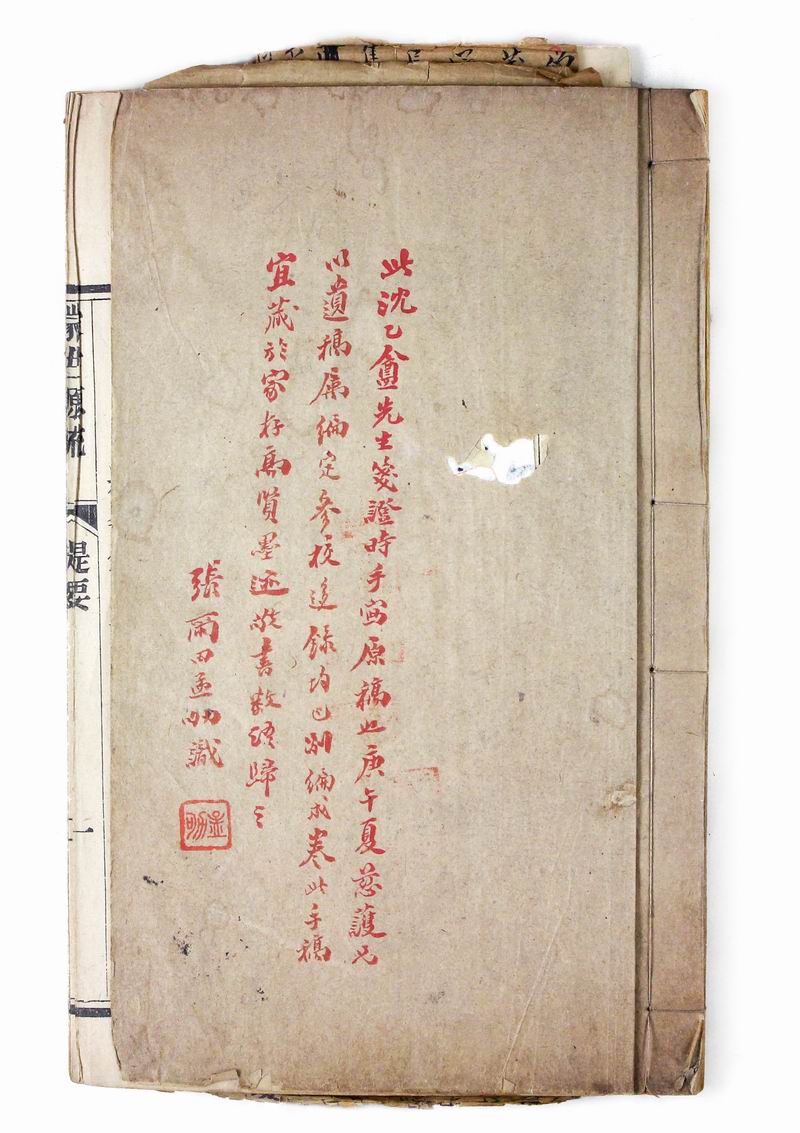 此沈乙盦先生箋證時手寫原稿也庚午夏慈護兄
以遺稿属編定參校迻錄均已別編成卷此手稿
宜藏於家存為質墨迹敬書数語歸之
張爾田孟劬識
孟劬
蒙古源流
提要
一